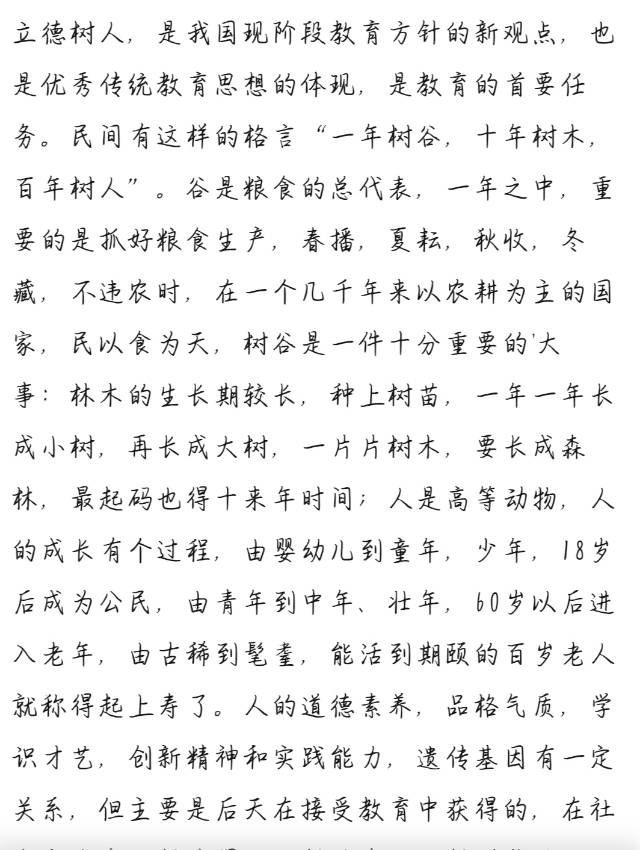 立德树人，是我国现阶段教育方针的新观点，也
是优秀传统教育思想的体现，是教育的首要任
务。民间有这样的格言“一年树谷，十年树木，
百年树人”。谷是粮食的总代表，一年之中，重
要的是抓好粮食生产，春播，夏耘，秋收，冬
藏，不违农时，在一个几千年来以农耕为主的国
家，民以食为天，树谷是一件十分重要的'大
事：林木的生长期较长，种上树苗，一年一年长
成小树，再长成大树，一片片树木，要长成森
林，最起码也得十来年时间；人是高等动物，人
的成长有个过程，由婴幼儿到童年，少年，18岁
后成为公民，由青年到中年、壮年，60岁以后进
入老年，由古稀到髦耋，能活到期颐的百岁老人
就称得起上寿了。人的道德素养，品格气质，学
识才艺，创新精神和实践能力，遗传基因有一定
关系，但主要是后天在接受教育中获得的，在社